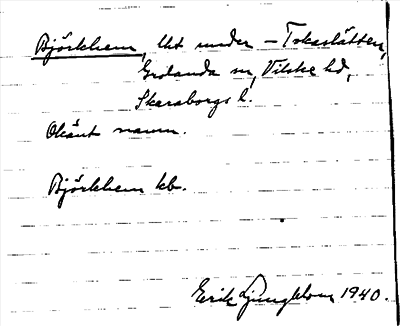 Björkhem, lht under – Tokaslätten,
Grolanda sn, Vilske hd,
Skaraborgs l.
Okänt namn.
Björkhem kb.
Erik Ljungblom 1940.